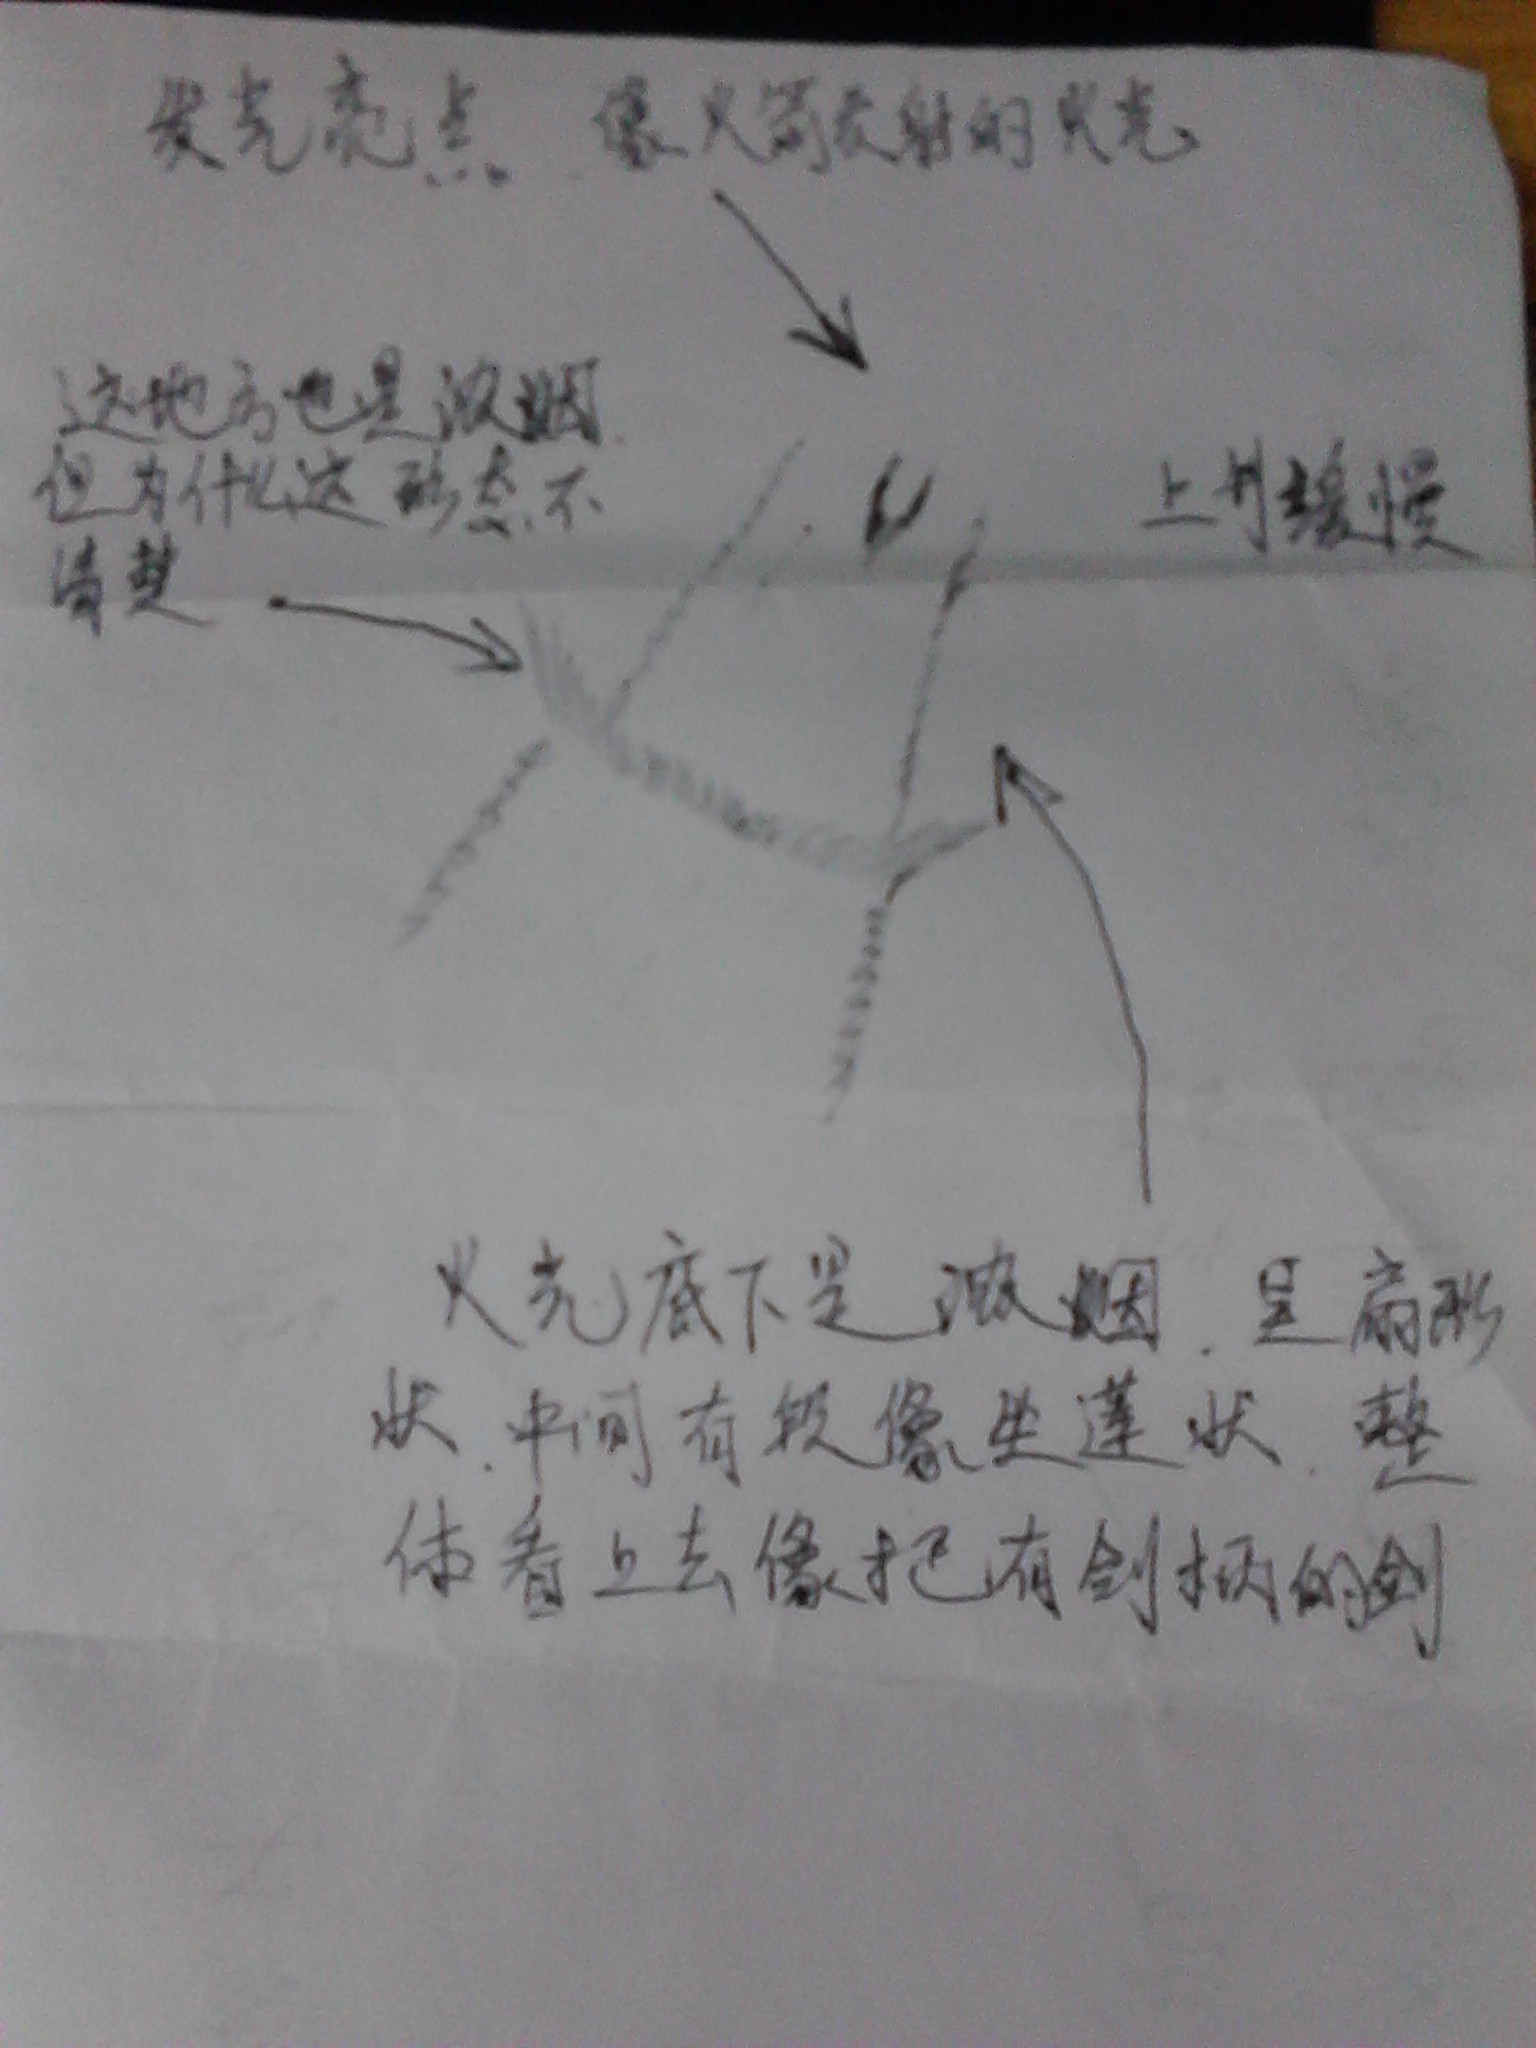 发光亮点.像火箭发射的火光
这地方也是浓烟.
但为什么这形态不
清楚
上升缓慢
火光底下是浓烟.呈扇形
状.中间有段像坐莲状.整
体看上去像把有剑柄的剑